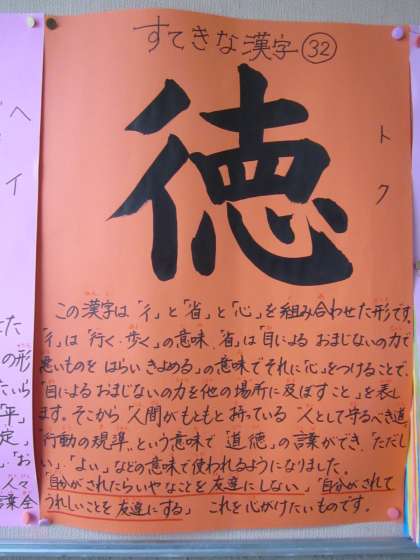 すてきな漢字 32
徳
トク
この漢字は「彳」と「省」と「心」を組み合わせた形です。
「彳」は「行く・歩く」の意味、「省」は「目による おまじないの力で
悪いものを はらい きよめる」の意味でそれに「心」をつけることで、
「目によるおまじないの力を他の場所に及ぼすこと」を表し
ます。そこから「人間がもともと持っている 人として守るべき道」
「行動の規準」という意味で「道徳」の言葉ができ、「ただし
い」「よい」などの意味で使われるようになりました。
「自分がされたらいやなことを友達にしない」「自分がされて
うれしいことを友達にする」 これを心がけたいものです。
ヘイ
た
の形
たいら
年」
定
」「お
人々
言葉全